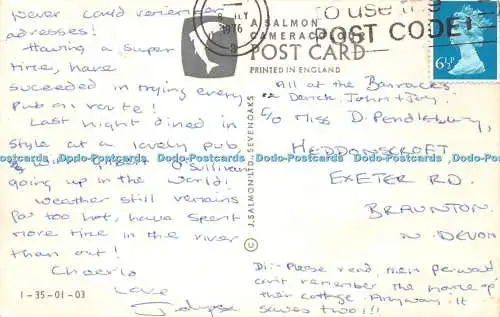 Never could remember
adresses!
Having a super
time, have
succeeded in trying every
pub on route!
Last night dined in
style at a lovely pub,
with Gilbert O'Sullivan
going up in the world!
Weather still remains
far too hot, have spent
more time in the river
than out!
Cheerio
Love
1-35-01-03
1976
TO USE THE
POST CODE
A SALMON
CAMERACOLOUR
POST CARD
PRINTED IN ENGLAND
6½P
© J. SALMON LTD., SEVENOAKS
All at the Barracks
or Derick, John + Joy.
C/o Miss D. Pendlebury,
HEDDONSCROFT
EXETER RD.
BRAUNTON
N. DEVON
Di:- Please read, then forward
can't remember the name of
their cottage. Anyway it
saves two!!!
Dodo-Postcards Dodo-Postcards Dodo-Postcards Dodo-Postcards Dodo-Postcards